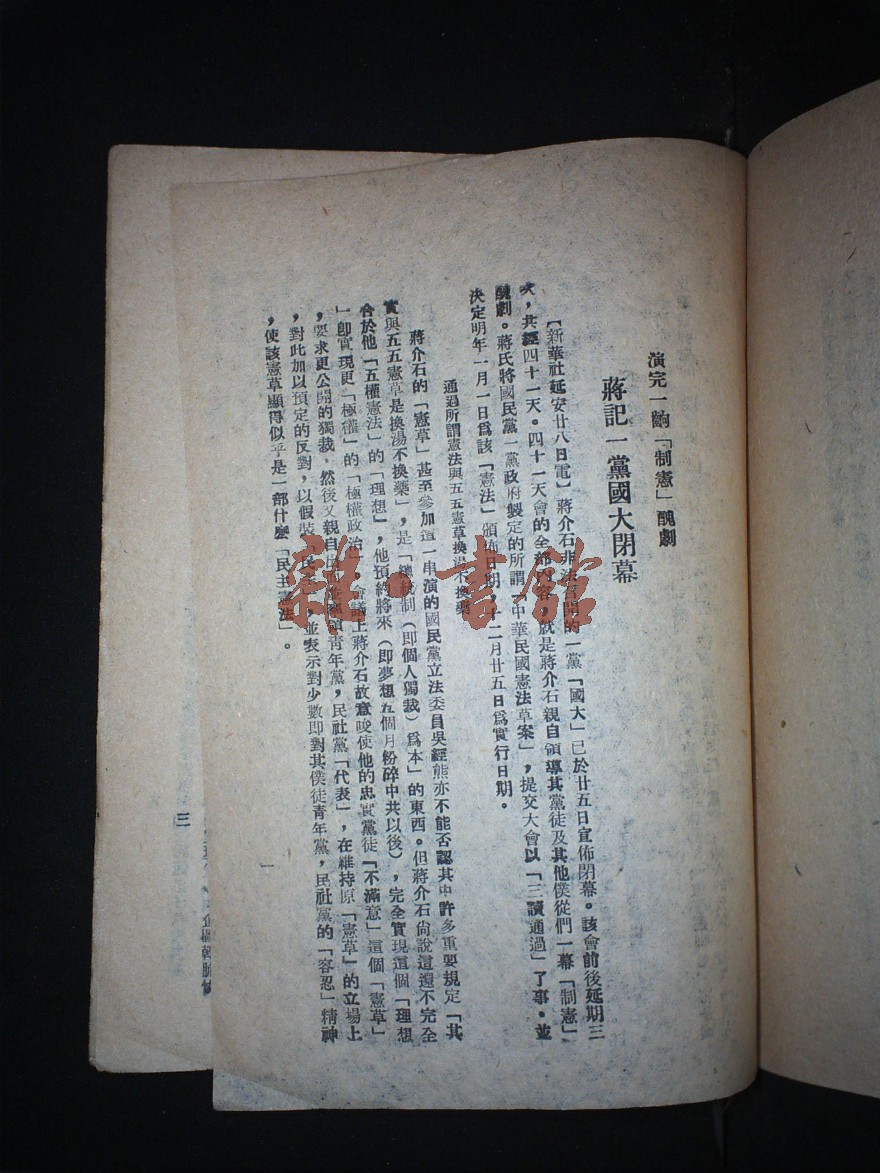 演完一齣「制憲」醜劇
蔣記一黨國大閉幕
【新華社延安廿八日電】蔣介石非法召開的一黨「國大」已於廿五日宣佈閉幕。該會前後延期三
次，共經四十一天。四十一天會的全部內容，就是蔣介石親自領導其黨徒及其他僕從們一幕「制憲」
醜劇。蔣氏將國民黨一黨政府製定的所謂「中華民國憲法草案」，提交大會以「三讀通過」了事。並
決定明年一月一日爲該「憲法」頒佈日期，十二月廿五日爲實行日期。
通過所謂憲法與五五憲草換湯不換藥
蔣介石的「憲草」甚至參加這一串演的國民黨立法委員吳經熊亦不能否認其中許多重要規定「其
實與五五憲草是換湯不換藥」，是「總統制（即個人獨裁）爲本」的東西。但蔣介石尙說這還不完全
合於他「五權憲法」的「理想」，他預約將來（即夢想五個月粉碎中共以後），完全實現這個「理想
」即實現更「極權」的「極權政治」。會議上蔣介石故意唆使他的忠實黨徒「不滿意」這個「憲草」
，要求更公開的獨裁，然後又親自出而 青年黨，民社黨「代表」，在維持原「憲草」的立場上
，對此加以預定的反對，以假裝「民 ，並表示對少數即對其僕徒青年黨，民社黨的「容忍」精神
，使該憲草顯得似乎是一部什麼「民主憲法」。
一
三
雜·書館